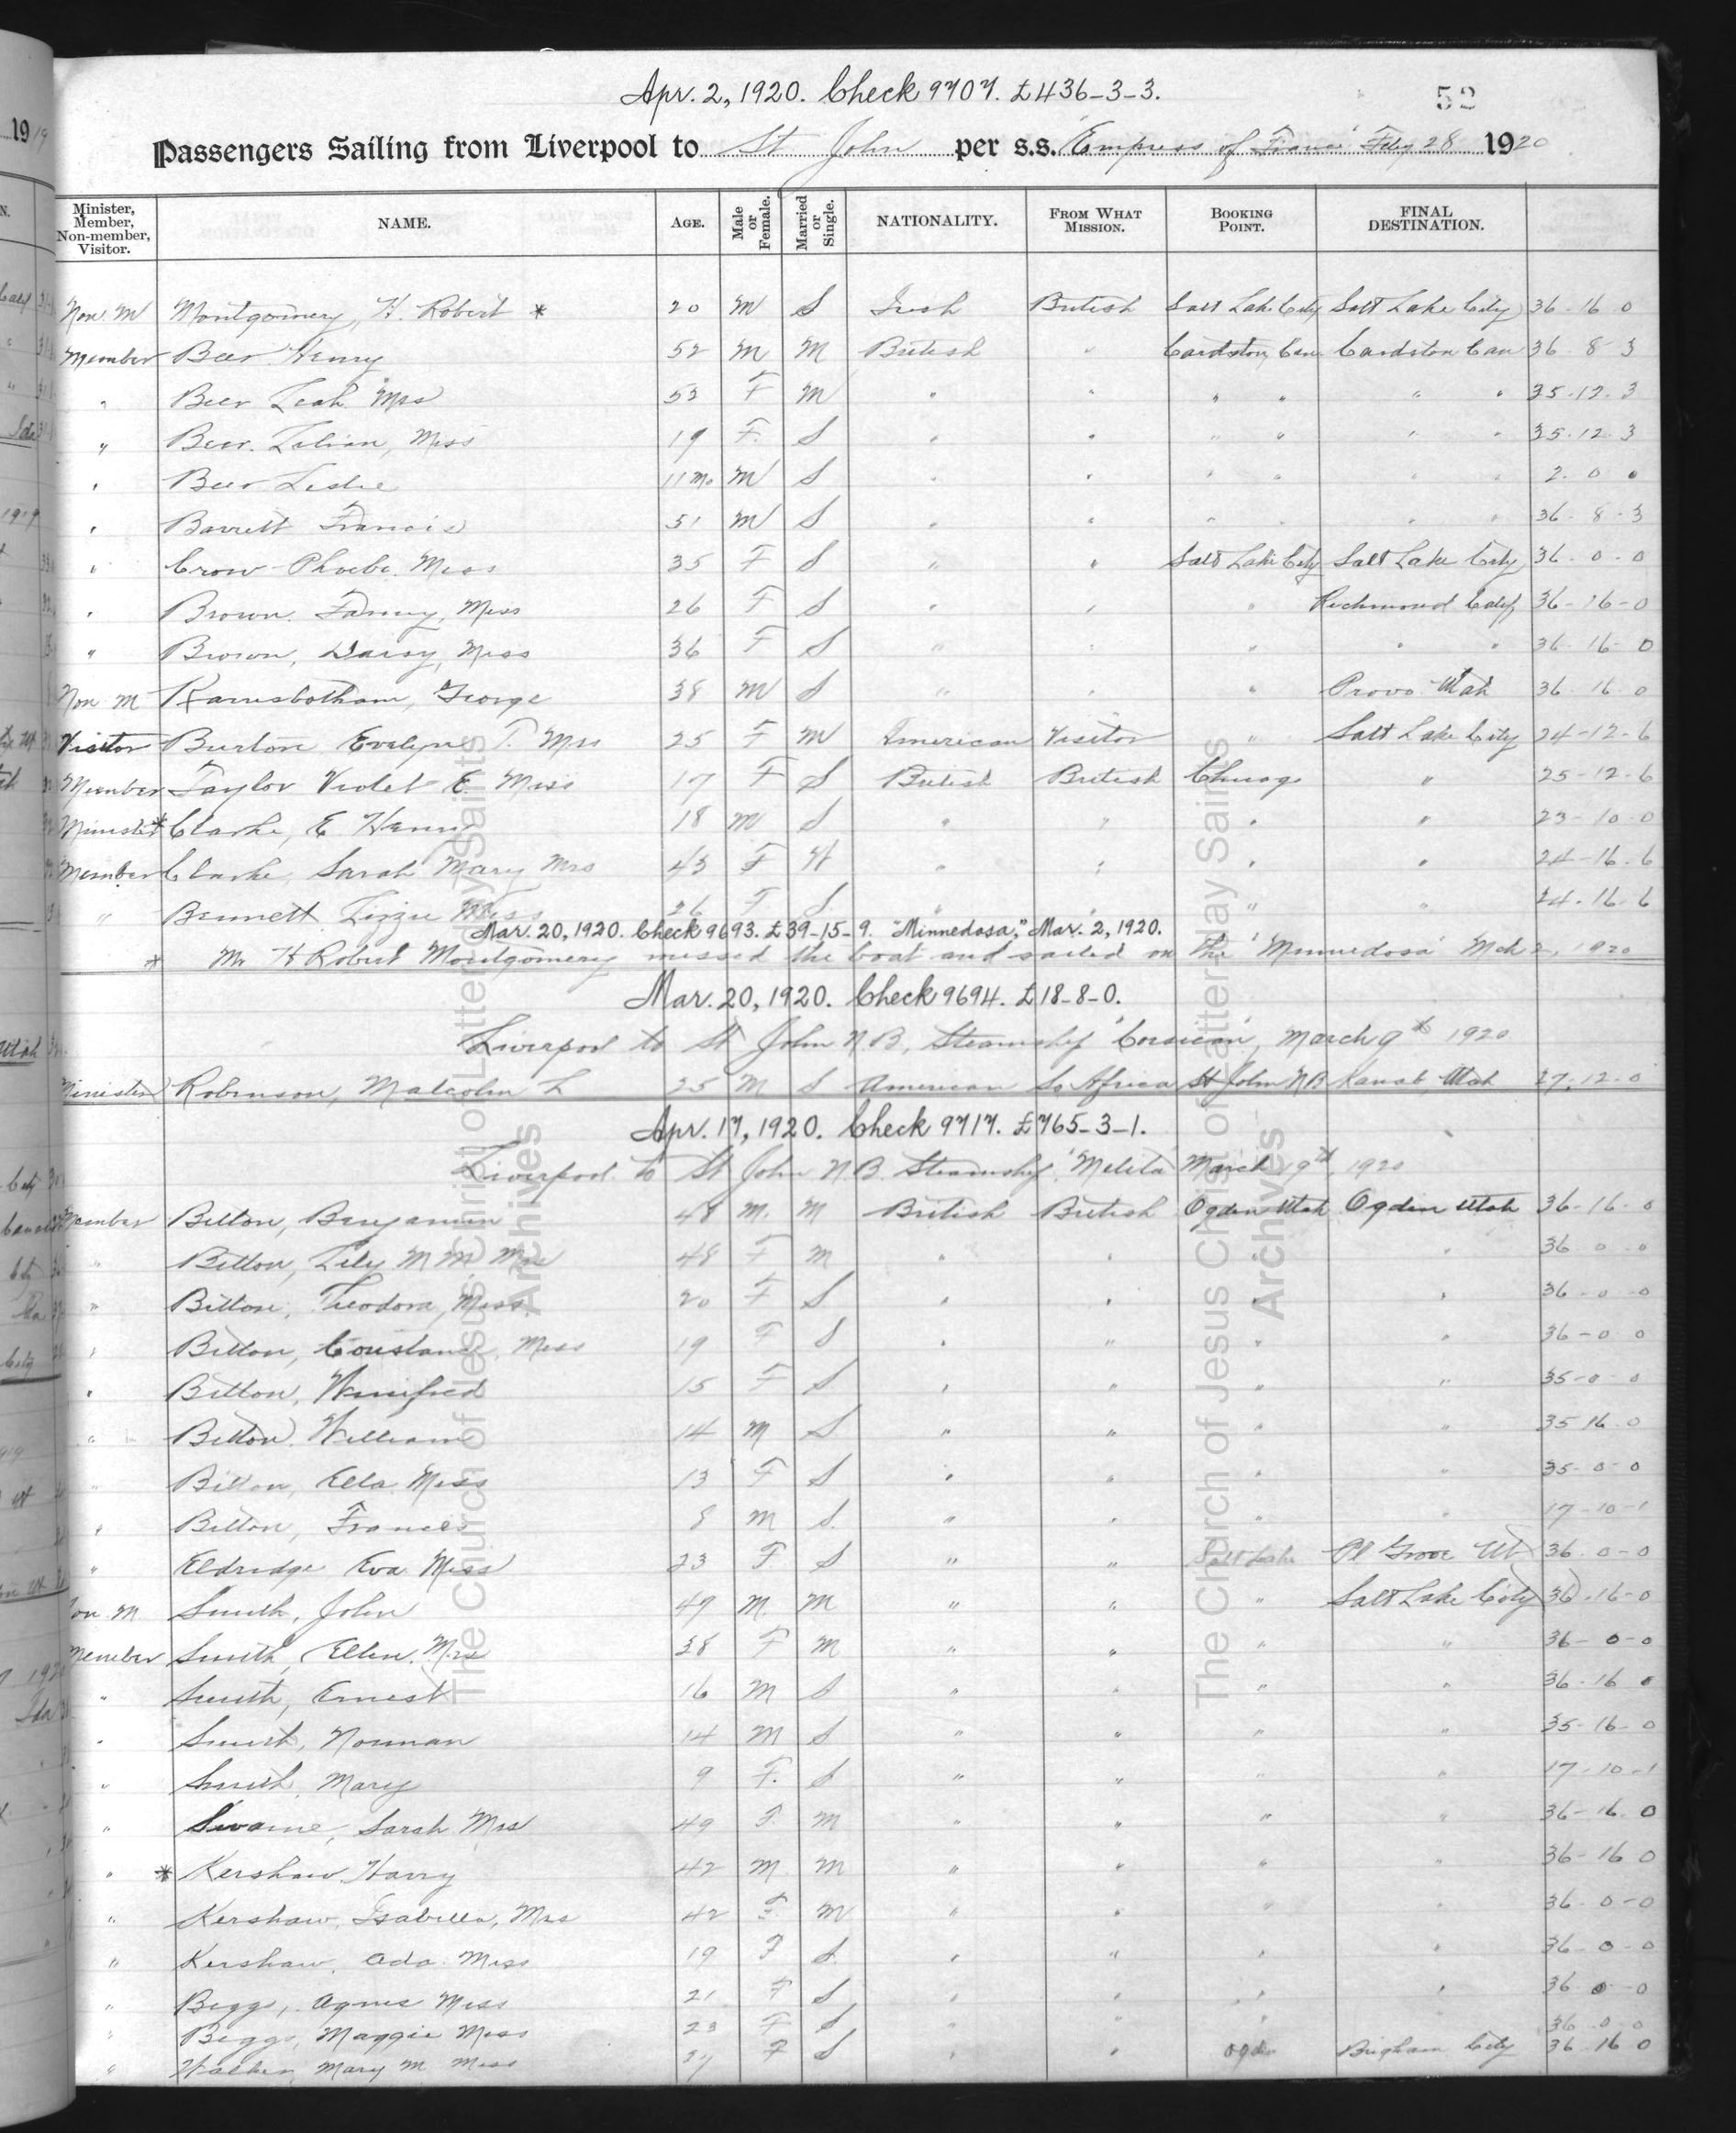 Apr. 2, 1920. Check 9707. £436-3-3.
52
Passengers Sailing from Liverpool to St John per s.s. "Empress of France" Feby 28 1920
Minister, Member, Non-member, Visitor. NAME. AGE. Male or Female. Married or Single. NATIONALITY. FROM WHAT MISSION. BOOKING POINT. FINAL DESTINATION.
Non M Montgomery, H. Robert * 20 M S Irish British Salt Lake City Salt Lake City 36-16-0
Member Beer Henry 52 M M British " Cardston, Can. Cardston Can 36 8 3
" Beer Leah Mrs 53 F M " " " " " " 35-12-3
" Beer. Lilian, Miss 19 F. S " " " " " " 35-12-3
" Beer Leslie 11 Mo M S " " " " " " 2-0 0
" Barrett Francis 51 M S " " " " " " 36-8-3
" Crow Phoebe. Miss 35 F S " " Salt Lake City Salt Lake City 36-0-0
" Brown. Fanny, Miss 26 F S " " " Richmond Calif 36-16-0
" Brown, Daisy, Miss 36 F S " " " " " 36-16-0
Non M Ramsbotham, George 38 M S " " " Provo Utah 36 16 0
Visitor Burton Evelyn T. Mrs 25 F M American Visitor " Salt Lake City 24-12-6
Member Taylor Violet E. Miss 17 F S British British Chicago " 25-12-6
Minister * Clarke, E Henry 18 M S " " " " 23-10-0
Member Clarke, Sarah Mary Mrs 43 F W " " " " 24-16-6
" Bennett Lizzie Miss 26 F. S. " " " " 24-16-6
Mar. 20, 1920. Check 9693. £39-15-9. "Minnedosa," Mar. 2, 1920.
* Mr H Robert Montgomery missed the boat and sailed on the "Minnedosa" Mch 2, 1920
Mar. 20, 1920. Check 9694. £18-8-0.
Liverpool to St John N.B, Steamship "Corsican", March 9th 1920
Minister Robinson, Malcolm L 25 M S American So Africa St John NB Kanab, Utah 27.12.0
Apr. 17, 1920. Check 9717. £765-3-1.
Liverpool to St John N.B. Steamship "Melita" March 19th, 1920
Member Bitton, Benjamin 48 M. M British British Ogden Utah Ogden Utah 36-16-0
" Bitton, Lily M M Mrs 48 F M " " " " 36 0 0
" Bitton, Theodora, Miss 20 F S " " " " 36-0-0
" Bitton, Constance, Miss 19 F S " " " " 36-0 0
" Bitton, Winifred 15 F S " " " " 35-0-0
" Bitton. William 14 M S " " " " 35 16 0
" Bitton, Ella Miss 13 F S " " " " 35-0-0
" Bitton, Frances 8 M S. " " " " 17-10-1
" Eldridge Eva Miss 23 F. S " " Salt Lake Pl Grove Ut 36-0-0
Non M Smith, John 49 M. M " " " Salt Lake City 36-16-0
Member Smith, Ellen. Mrs 38 F M " " " " 36-0-0
" Smith, Ernest 16 M S " " " " 36-16 0
" Smith, Norman 14 M S " " " " 35-16-0
" Smith, Mary 9 F. S " " " " 17-10-1
" Swaine, Sarah Mrs 49 F. M " " " " 36-16 0
" * Kershaw Harry 42 M M " " " " 36-16 0
" Kershaw, Isabella, Mrs 42 F. M " " " " 36-0-0
" Kershaw, Ada Miss 19 F S. " " " " 36-0-0
" Beggs, Agnes Miss 21 F S " " " " 36 0 0
" Beggs, Maggie Miss 23 F S " " " " 36-0-0
" Walker, Mary M Miss 37 F S " " Ogden Brigham City 36 16 0
The Church of Jesus Christ of Latter-day Saints
Archives
The Church of Jesus Christ of Latter-day Saints
Archives